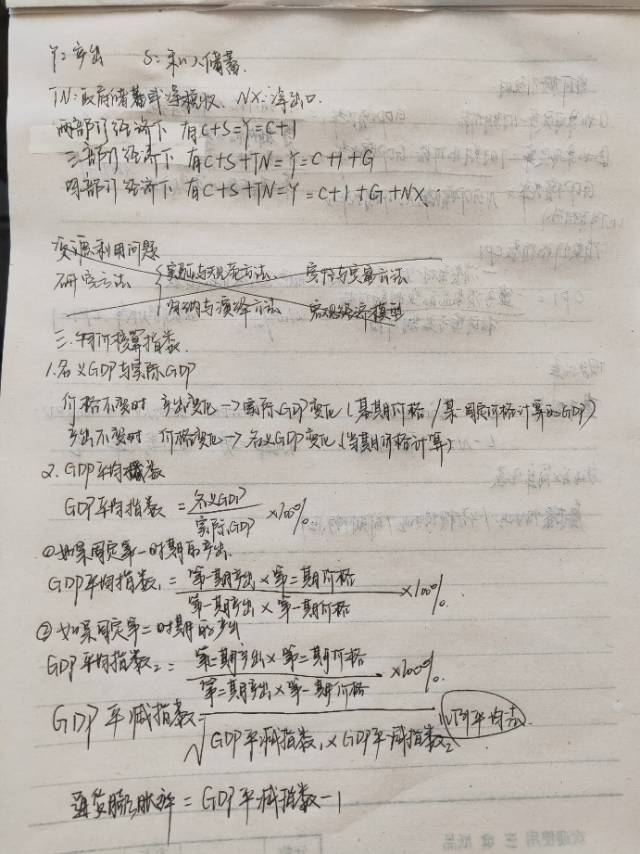 Y：产出 S：私人储蓄.
TN：政府储蓄或净税收、NX：净出口.
两部门经济下 有C+S=Y=C+I
三部门经济下 有C+S+TN=Y=C+I+G
四部门经济下 有C+S+TN=Y=C+I+G+NX.
资源利用问题
研究方法 { 实证与规范方法 定性与定量方法
归纳与演绎方法 宏观经济模型
三.物价核算指数.
1.名义GDP与实际GDP
价格不变时 产出变化→实际GDP变化(基期价格/某一固定价格计算的GDP)
产出不变时 价格变化→名义GDP变化(当期价格计算)
2.GDP平均指数
GDP平均指数 = 名义GDP/实际GDP ×100%.
①如果固定第一时期的产出
GDP平均指数1 = 第一期产出×第二期价格/第一期产出×第一期价格 ×100%.
②如果固定第二时期的产出
GDP平均指数2 = 第二期产出×第二期价格/第二期产出×第一期价格 ×100%.
GDP平减指数=√GDP平减指数1×GDP平减指数2 几何平均法
通货膨胀率=GDP平减指数-1